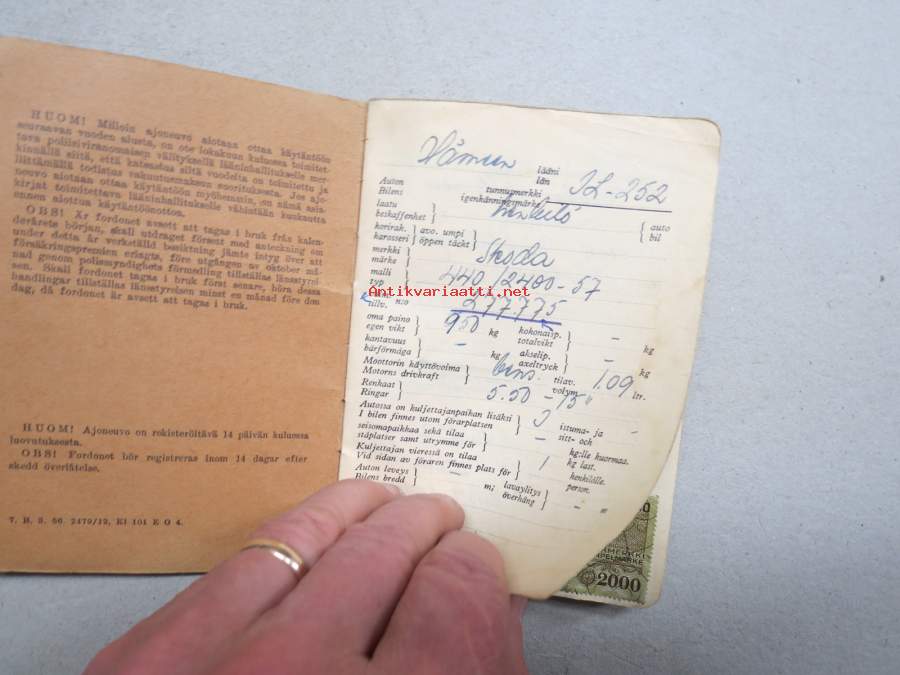 HUOM! Milloin ajoneuvo aiotaan ottaa käytäntöön
seuraavan vuoden alusta, on ote lokakuun kuluessa toimitet-
tava poliisiviranomaisen välityksellä lääninhallitukselle mer-
kinnällä siitä, että katsastus siltä vuodelta on toimitettu ja
liittämällä todistus vakuutusmaksun suorituksesta. Jos ajo-
neuvo aiotaan ottaa käytäntöön myöhemmin, on nämä asia-
kirjat toimitettava lääninhallitukselle vähintään kuukautta
ennen aiottua käytäntöönottoa.
OBS! Är fordonet avsett att tagas i bruk från kalen-
derårets början, skall utdraget försett med anteckning om
under detta år verkställd besiktning jämte intyg över att
försäkringspremien erlagts, före utgången av oktober må-
nad genom polismyndighets förmedling tillställas länsstyrel-
sen. Skall fordonet tagas i bruk först senare, böra dessa
handlingar tillställas länsstyrelsen minst en månad före den
dag, då fordonet är avsett att tagas i bruk.
HUOM! Ajoneuvo on rekisteröitävä 14 päivän kuluessa
luovutuksesta.
OBS! Fordonet bör registreras inom 14 dagar efter
skedd överlåtelse.
7. H. S. 56. 2479/12, Kl 101 E O 4.
Hämeen lääni
län
Auton
Bilens
tunnusmerkki
igenkänningsmärke
IL-252
laatu
beskaffenhet
henkilö
auto
bil
korirak.
karosseri
avo. umpi
öppen täckt
merkki
märke
Skoda
malli
typ
440/2400-57
n:o
tillv.
277.775
Antikvariaatti.net
oma paino
egen vikt
950 kg
kokonaisp.
totalvikt
- kg
kantavuus
bärförmåga
- kg
akselip.
axeltryck
- kg
Moottorin käyttövoima
Motorns drivkraft
bens.
tilav.
volym
1.09 ltr.
Renkaat
Ringar
5.50 - 15"
Autossa on kuljettajanpaikan lisäksi
I bilen finnes utom förarplatsen
3
istuma- ja
sitt- och
-
seisomapaikkaa sekä tilaa
ståplatser samt utrymme för
-
kg:lle kuormaa.
kg last.
Kuljettajan vieressä on tilaa
Vid sidan av föraren finnes plats för
1
henkilölle.
person.
Auton leveys
Bilens bredd
-
m;
lavaylitys
överhäng
- "
2000